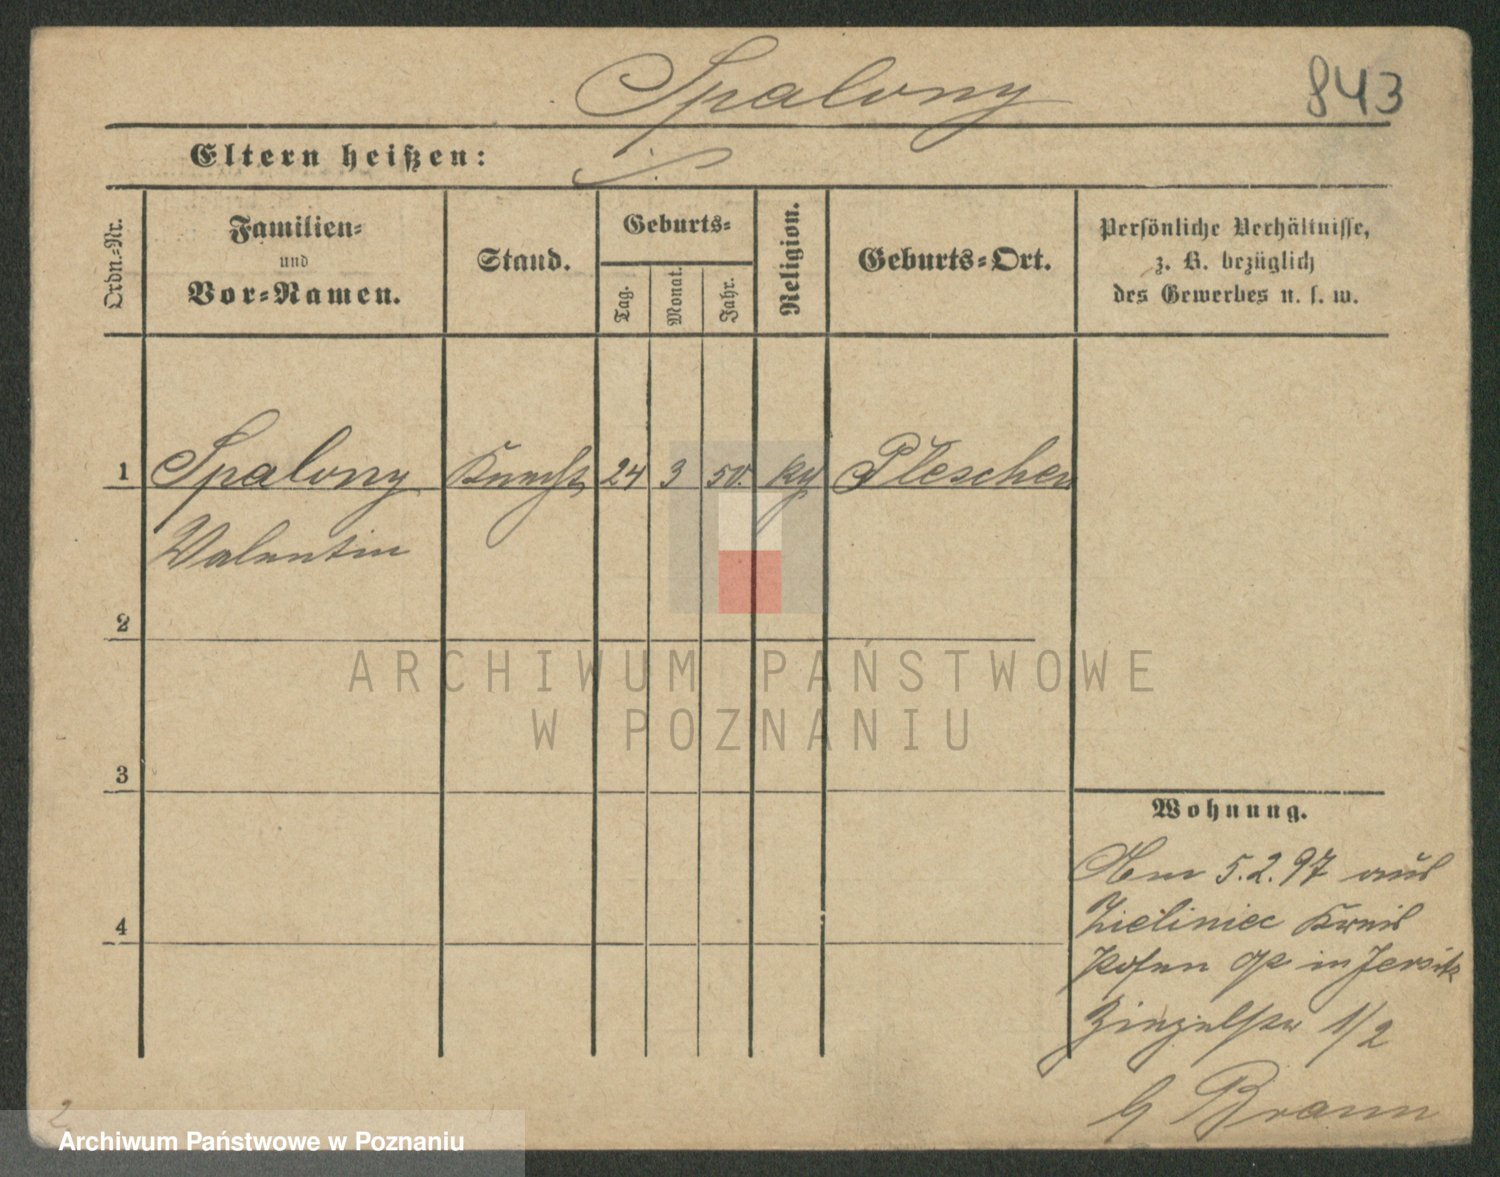 Spalony
843
Eltern heißen:
Ordn.-Nr.
Familien-
und
Vor-Namen.
Stand.
Geburts-
Tag.
Monat.
Jahr.
Religion.
Geburts-Ort.
Persönliche Verhältnisse,
z. B. bezüglich
des Gewerbes u. s. w.
1 Spalony Knecht 24 3 50. Pleschen
Valentin
2
3
4
Wohnung.
Am 5.2.97 aus
Zieliniec Kreis
Posen in Jersitz
1/2
b Braun
2
ARCHIWUM PAŃSTWOWE
W POZNANIU
Archiwum Państwowe w Poznaniu